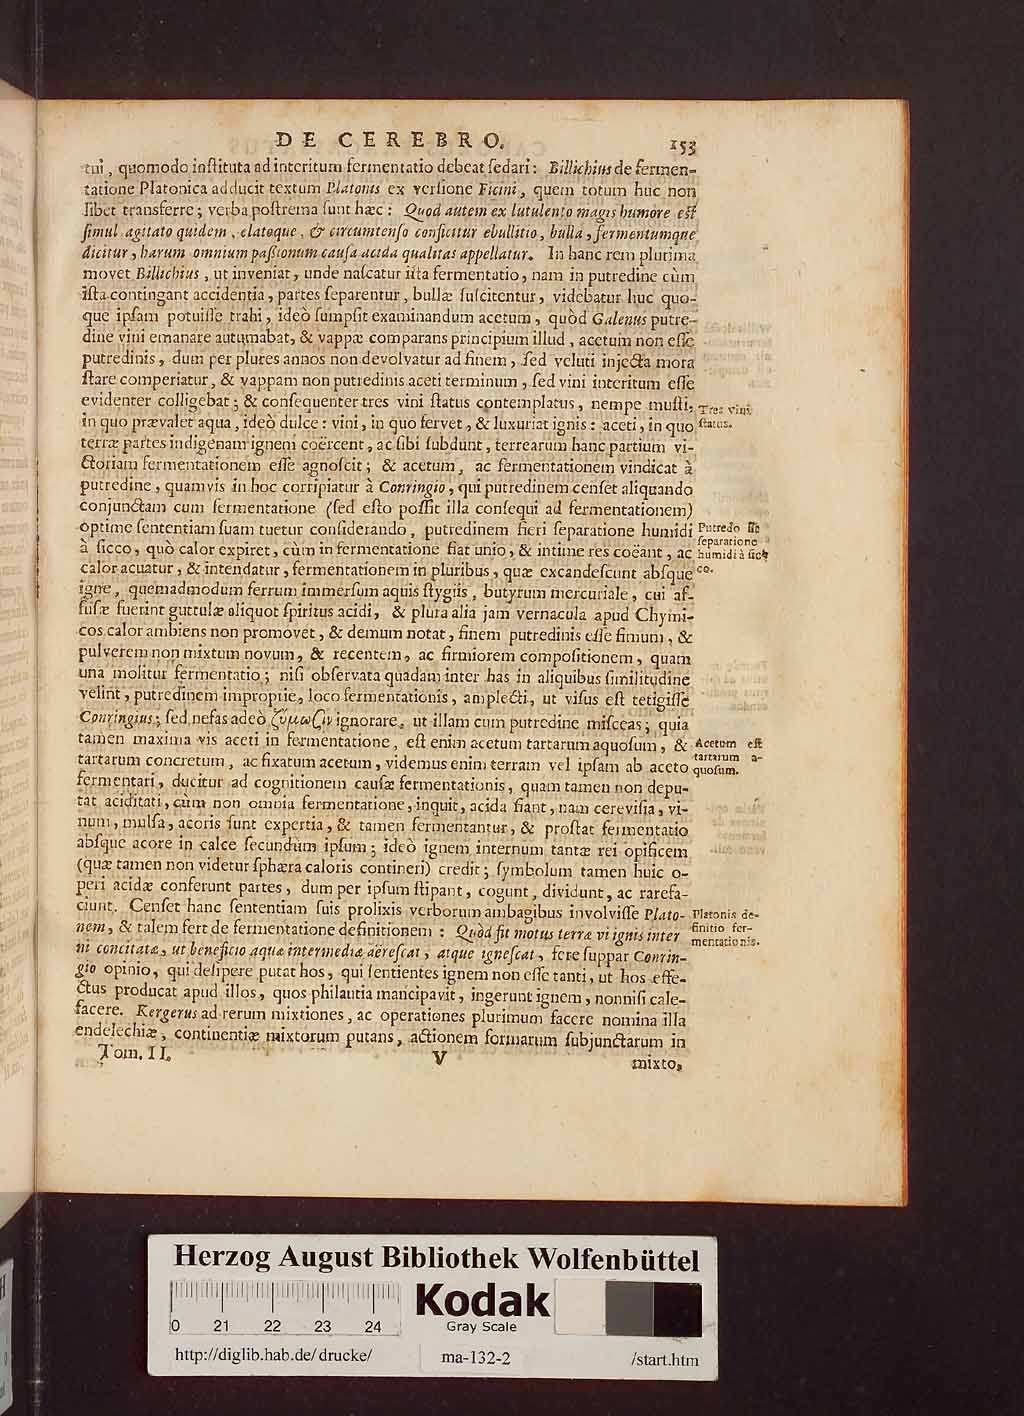 DE CEREBRO. 153
tui, quomodo instituta ad interitum fermentatio debeat sedari: Billichius de fermen-
tatione Platonica adducit textum Platonis ex versione Ficini, quem totum huc non
libet transferre; verba postrema sunt hæc: Quod autem ex lutulento magis humore est
simul agitato quidem, elatoque, & circumtenso conficitur ebullitio, bulla, fermentumque
dicitur, harum omnium passionum causa acida qualitas appellatur. In hanc rem plurima
movet Billichius, ut inveniat, unde nascatur ista fermentatio, nam in putredine cùm
ista contingant accidentia, partes separentur, bullæ suscitentur, videbatur huc quo-
que ipsam potuisse trahi, ideò sumpsit examinandum acetum, quòd Galenus putre-
dine vini emanare autumabat, & vappæ comparans principium illud, acetum non esse
putredinis, dum per plures annos non devolvatur ad finem, sed veluti injecta mora
stare comperiatur, & vappam non putredinis aceti terminum, sed vini interitum esse
evidenter colligebat; & consequenter tres vini status contemplatus, nempe musti,
in quo prævalet aqua, ideò dulce: vini, in quo fervet, & luxuriat ignis: aceti, in quo
terræ partes indigenam ignem coërcent, ac sibi subdunt, terrearum hanc partium vi-
ctoriam fermentationem esse agnoscit; & acetum, ac fermentationem vindicat à
putredine, quamvis in hoc corripiatur à Conringio, qui putredinem censet aliquando
conjunctam cum fermentatione (sed esto possit illa consequi ad fermentationem)
optime sententiam suam tuetur considerando, putredinem fieri separatione humidi
à sicco, quò calor expiret, cùm in fermentatione fiat unio, & intime res coëant, ac
calor acuatur, & intendatur, fermentationem in pluribus, quæ excandescunt absque
igne, quemadmodum ferrum immersum aquis stygiis, butyrum mercuriale, cui af-
fusæ fuerint guttulæ aliquot spiritus acidi, & plura alia jam vernacula apud Chymi-
cos calor ambiens non promovet, & demum notat, finem putredinis esse fimum, &
pulverem non mixtum novum, & recentem, ac firmiorem compositionem, quam
una molitur fermentatio; nisi observata quadam inter has in aliquibus similitudine
velint, putredinem improprie, loco fermentationis, amplecti, ut visus est tetigisse
Conringius; sed nefas adeò ζύμωζιν ignorare, ut illam cum putredine misceas; quia
tamen maxima vis aceti in fermentatione, est enim acetum tartarum aquosum, &
tartarum concretum, ac fixatum acetum, videmus enim terram vel ipsam ab aceto
fermentari, ducitur ad cognitionem causæ fermentationis, quam tamen non depu-
tat aciditati, cùm non omnia fermentatione, inquit, acida fiant, nam cerevisia, vi-
num, mulsa, acoris sunt expertia, & tamen fermentantur, & prostat fermentatio
absque acore in calce secundum ipsum; ideò ignem internum tantæ rei opificem
(quæ tamen non videtur sphæra caloris contineri) credit; symbolum tamen huic o-
peri acidæ conferunt partes, dum per ipsum stipant, cogunt, dividunt, ac rarefa-
ciunt. Censet hanc sententiam suis prolixis verborum ambagibus involvisse Plato-
nem, & talem fert de fermentatione definitionem: Quòd sit motus terræ vi ignis inter
ni concitatæ, ut beneficio aquæ intermediæ aërescat, atque ignescat, fere suppar Conrin-
gio opinio, qui desipere putat hos, qui sentientes ignem non esse tanti, ut hos effe-
ctus producat apud illos, quos philautia mancipavit, ingerunt ignem, nonnisi cale-
facere. Kergerus ad rerum mixtiones, ac operationes plurimum facere nomina illa
endelechiæ, continentiæ mixtorum putans, actionem formarum subjunctarum in
Tom. II. V mixto,
Tres vini
status.
Putredo fit
separatione
humidi à sic-
co.
Acetum est
tartarum a-
quosum.
Platonis de-
finitio fer-
mentationis.
Herzog August Bibliothek Wolfenbüttel
0 21 22 23 24
Kodak
Gray Scale
http://diglib.hab.de/drucke/ ma-132-2 /start.htm